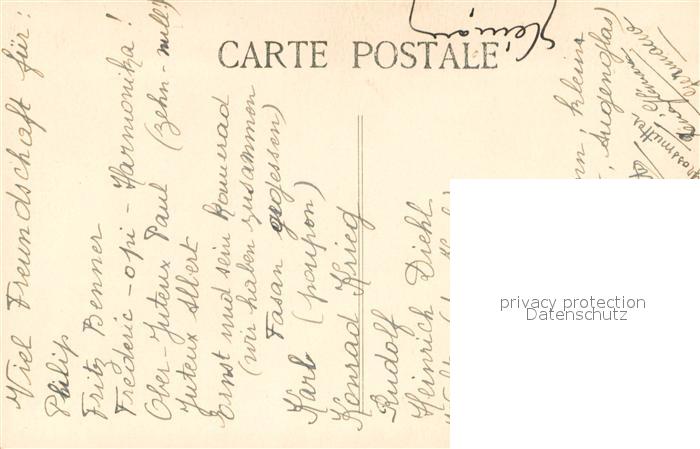 CARTE POSTALE
Viel Freundschaft für:
Philip
Fritz Benner
Frédéric-opi-Harmonika!
Ober-Juteux Paul (zehn-null!)
Juteux Albert
Ernst und sein Kamerad
(wir haben zusammen
Fasan gegessen)
Karl (poupon)
Konrad Krieg
Rudolf
Heinrich Diehl
klein
Augenglas)
Grossmutter
privacy protection
Datenschutz